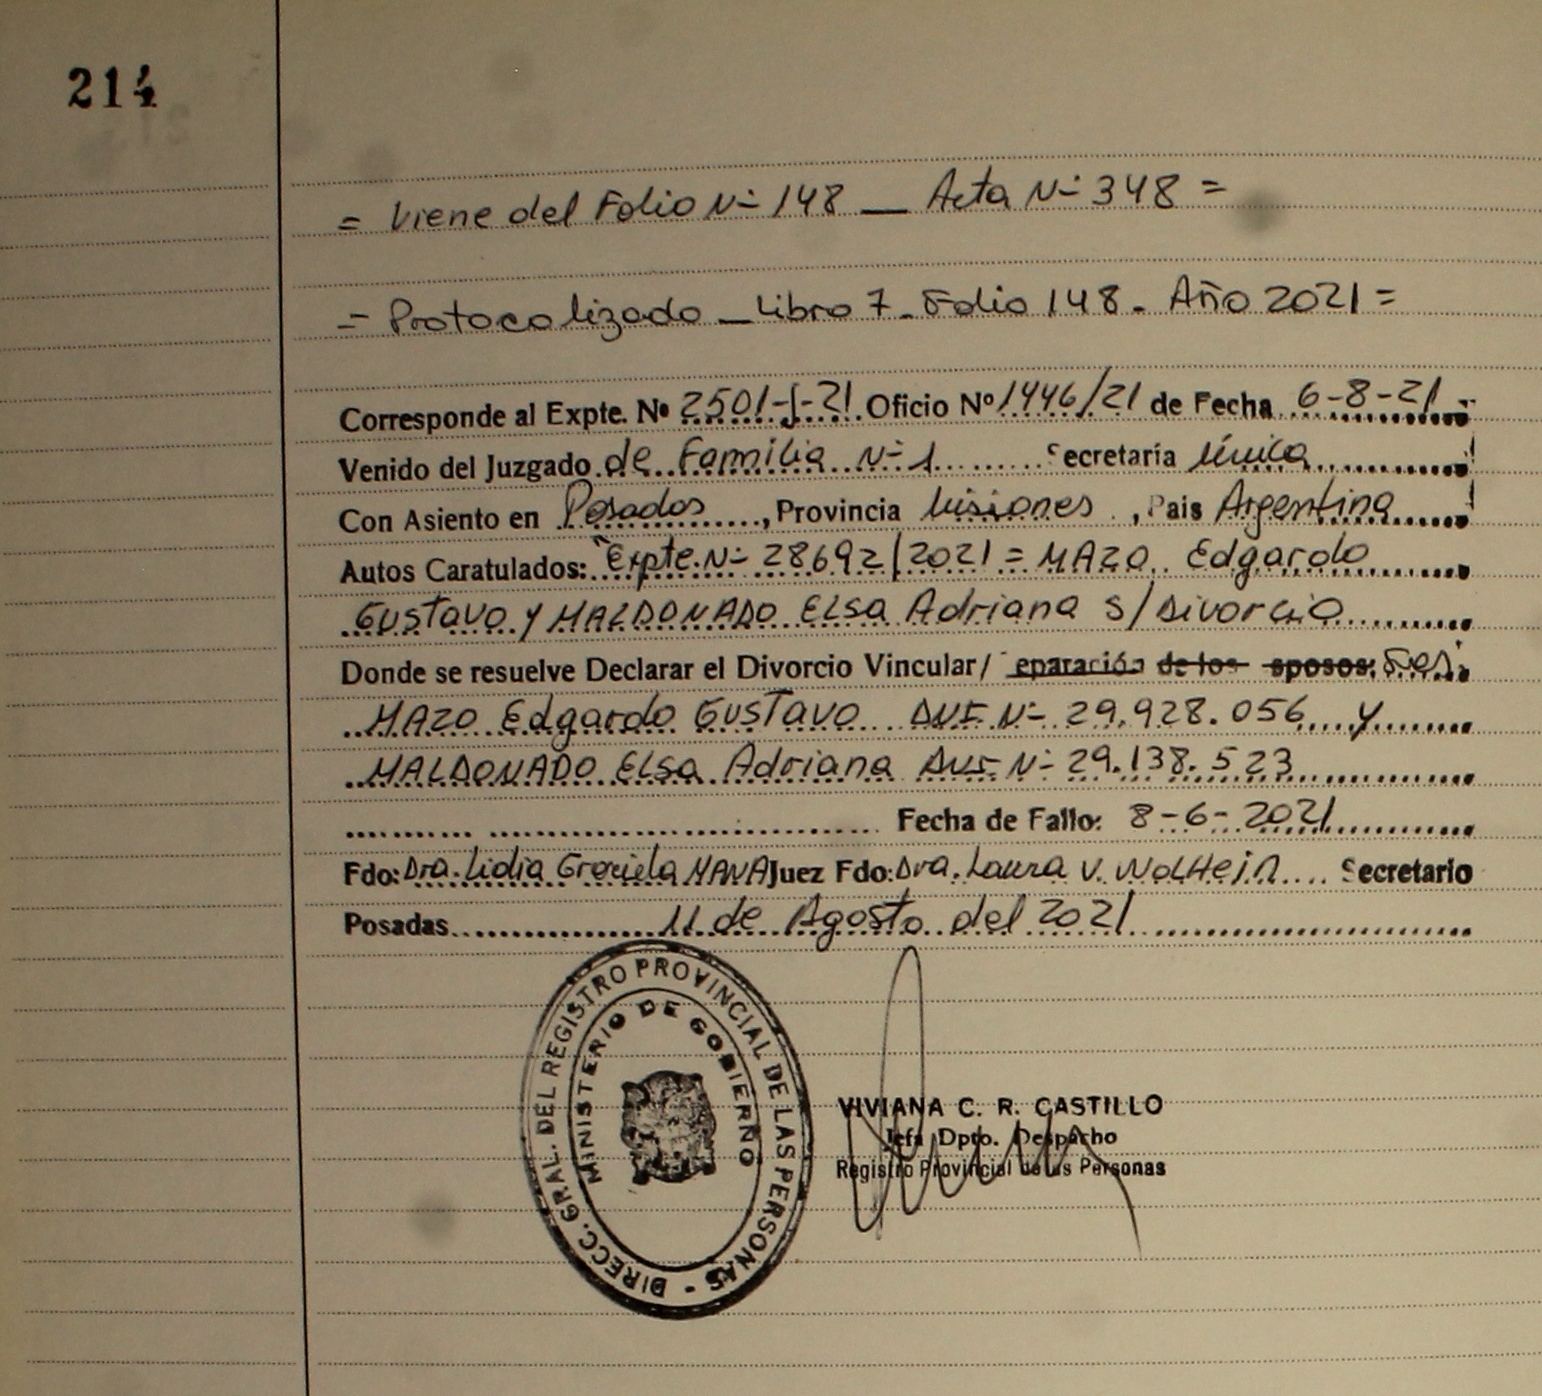 214
= Viene del Folio Nº 148 _ Acta Nº 348 =
= Protocolizado _ Libro 7 _ Folio 148. Año 2021 =
Corresponde al Expte. Nº 2501-J-21 Oficio Nº 1446/21 de Fecha 6-8-21
Venido del Juzgado de Familia Nº 1 Secretaría única
Con Asiento en Posadas, Provincia Misiones, Pais Argentina
Autos Caratulados: "Expte. Nº 28692/2021 = MAZO Edgardo
Gustavo y MALDONADO ELSA Adriana S/Divorcio
Donde se resuelve Declarar el Divorcio Vincular/ eparación de los sposos:
MAZO Edgardo Gustavo DNI Nº 29.928.056 y
MALDONADO ELSA Adriana DNI Nº 29.138.523
Fecha de Fallo: 8-6-2021
Fdo: Dra. Lidia Graciela Juez Fdo: Dra. Laura V. Secretario
Posadas 11 de Agosto del 2021
DIRECC. GRAL. DEL REGISTRO PROVINCIAL DE LAS PERSONAS -
MINISTERIO DE GOBIERNO
VIVIANA C. R. CASTILLO
Jefa Dpto. Despacho
Registro Provincial de las Personas